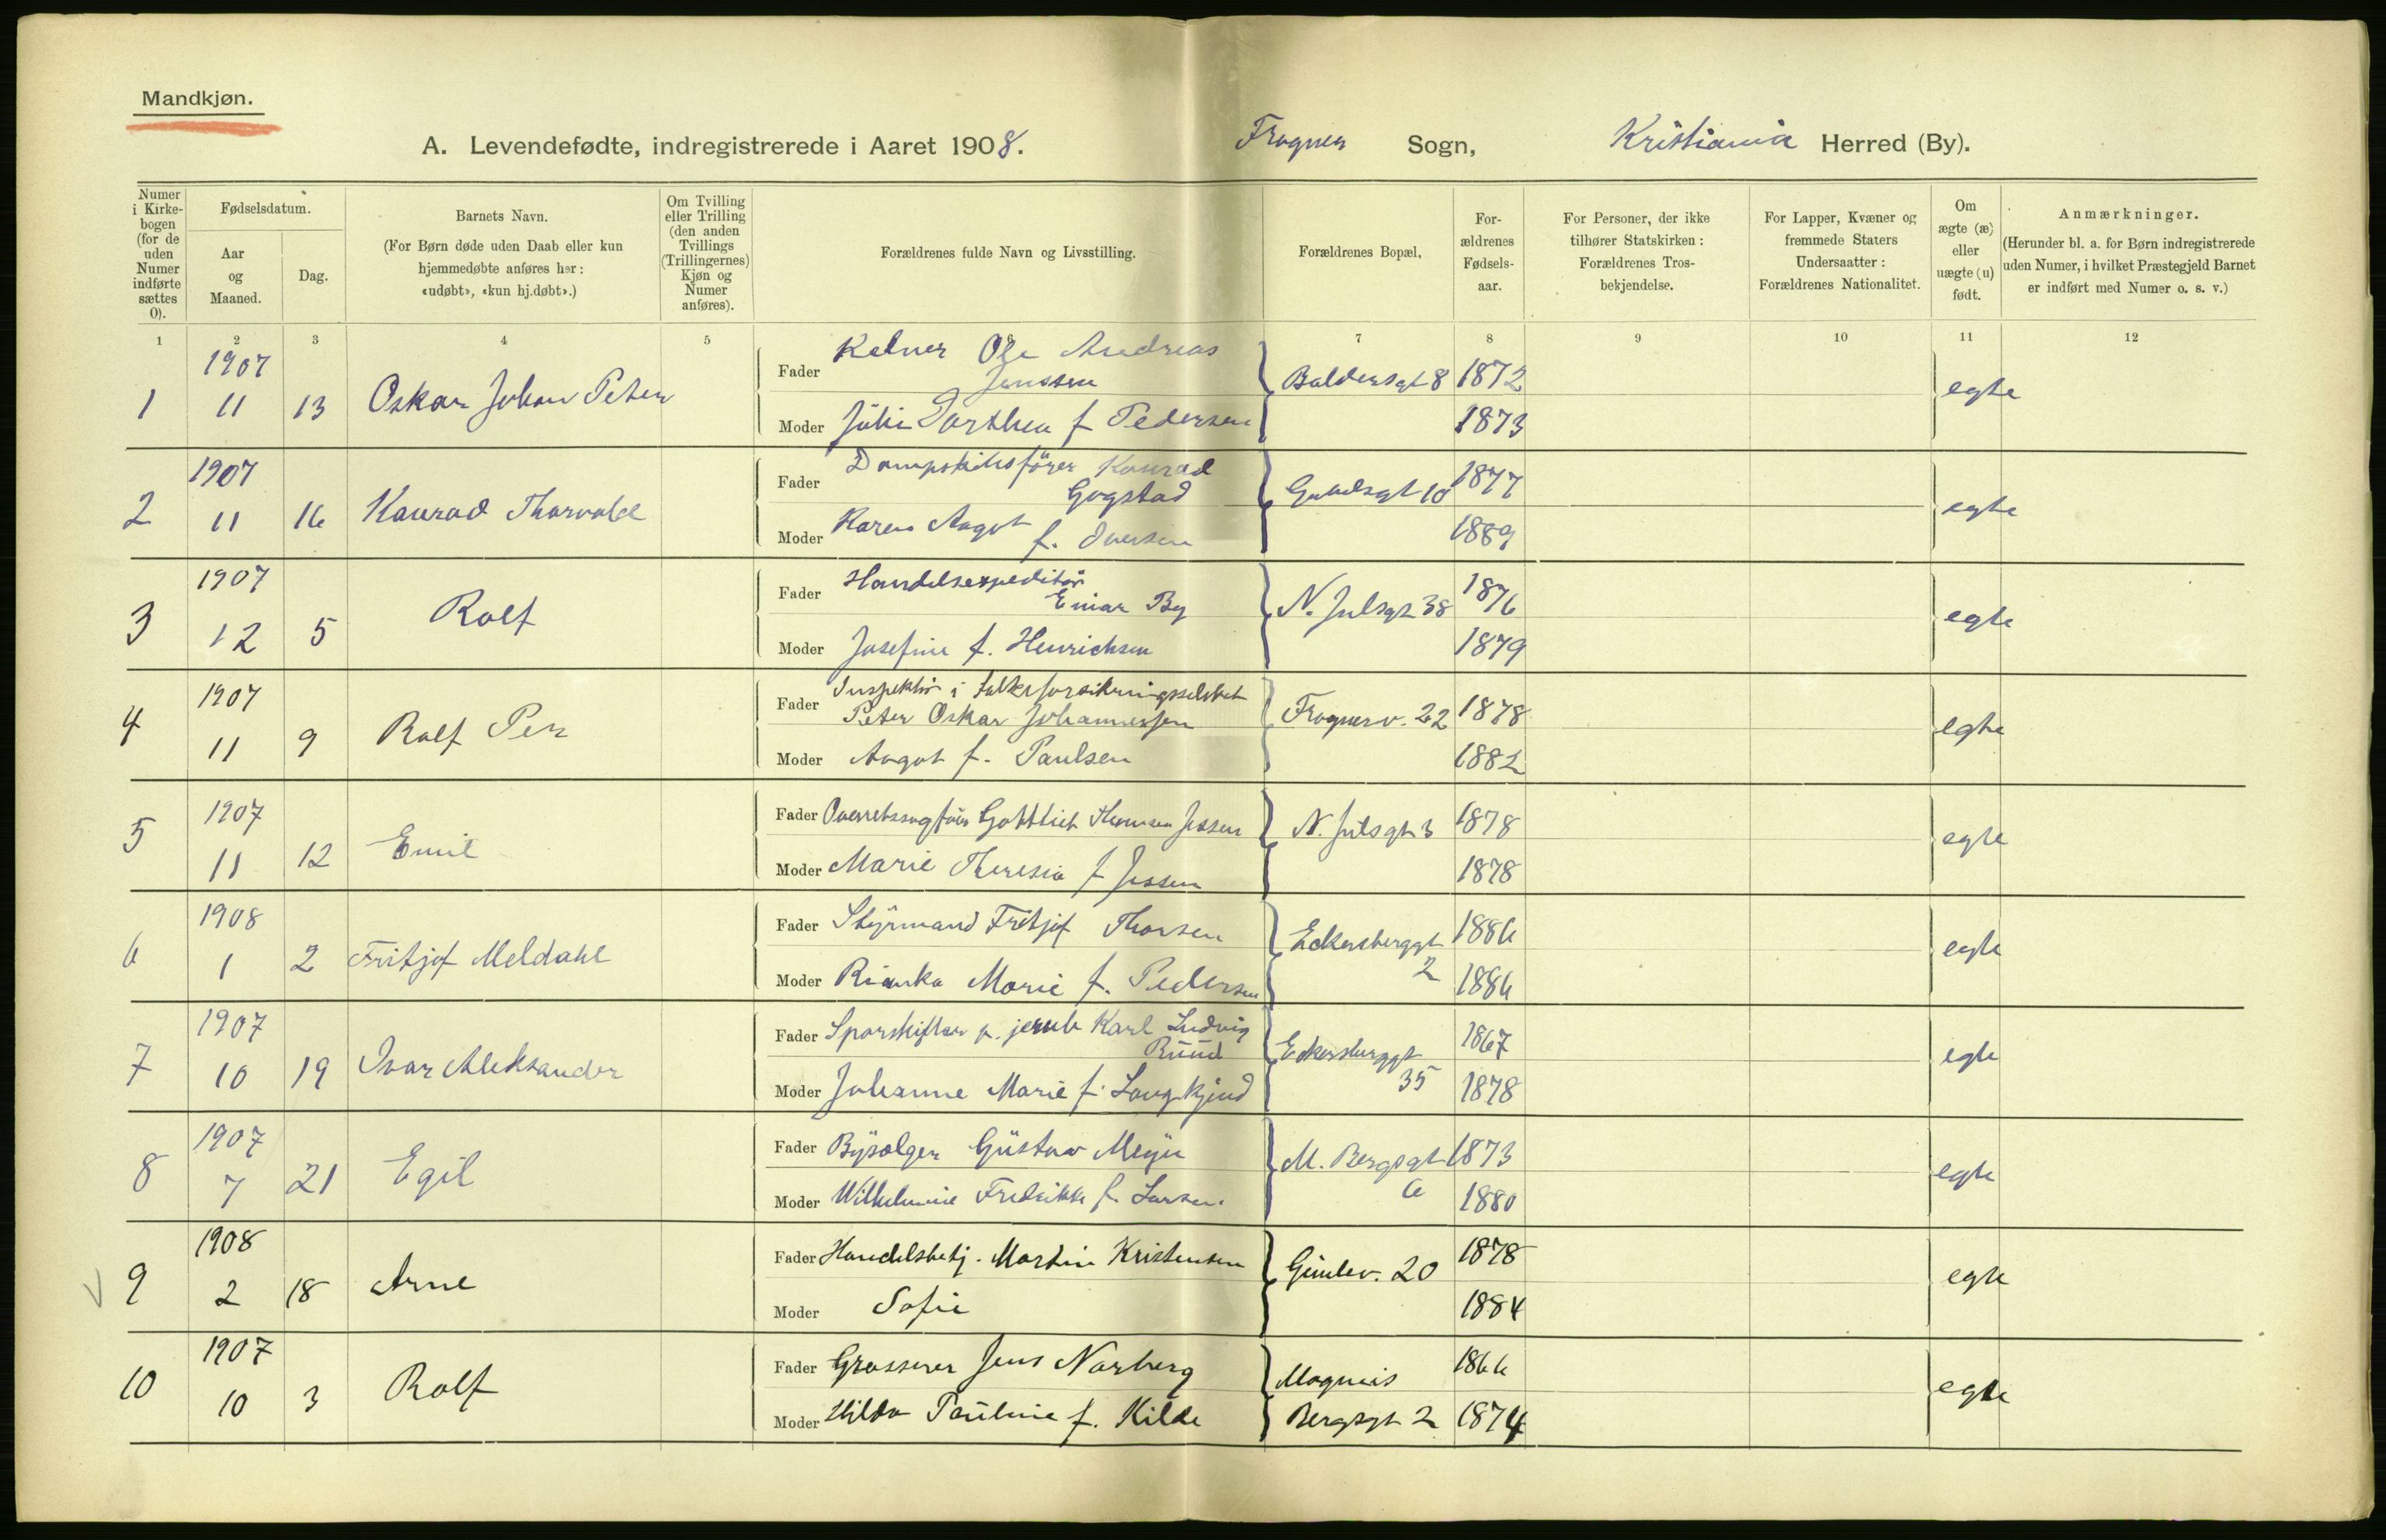 Mandkjøn.
A. Levendefødte, indregistrerede i Aaret 1908. Frogner Sogn, Kristiania Herred (By).
Numer i Kirkebogen (for de uden Numer indførte sættes 0).
Fødselsdatum.
Aar og Maaned.
Dag.
Barnets Navn.
(For Børn døde uden Daab eller kun hjemmedøbte anføres her: «udøbt», «kun hj.døbt».)
Om Tvilling eller Trilling (den anden Tvillings (Trillingernes) Kjøn og Numer anføres).
Forældrenes fulde Navn og Livsstilling.
Forældrenes Bopæl,
Forældrenes Fødselsaar.
For Personer, der ikke tilhører Statskirken: Forældrenes Trosbekjendelse.
For Lapper, Kvæner og fremmede Staters Undersaatter: Forældrenes Nationalitet.
Om ægte (æ) eller uægte (u) født.
Anmærkninger.
(Herunder bl. a. for Børn indregistrerede uden Numer, i hvilket Præstegjeld Barnet er indført med Numer o. s. v.)
1 2 3 4 5 7 8 9 10 11 12
1 1907 11 13 Oskar Johan Peter
Fader Kelner Ole Andreas Janssen Baldersgt 8 1872 egte
Moder Julie Dorthea f Pedersen 1873
2 1907 11 16 Konrad Thorvald
Fader Dampskibsfører Konrad Gogstad 10 1877 egte
Moder Karen Aagot f. Iversen 1889
3 1907 12 5 Rolf
Fader Handelsexpeditør Einar By N. Julsgt 38 1876 egte
Moder Josefine f. Henrichsen 1879
4 1907 11 9 Rolf Per
Fader Inspektør i Peter Oskar Johannessen Frognerv. 22 1878 egte
Moder Aagot f. Paulsen 1882
5 1907 11 12 Emil
Fader Overretssagfører Gottlieb Thomsen Jessen N. Julsgt 3 1878 egte
Moder Marie Theresia f Jessen 1878
6 1908 1 2 Fritjof Meldahl
Fader Styrmand Fritjof Thorsen Eckersberggt 2 1886 egte
Moder Marie f. Pedersen 1886
7 1907 10 19 Ivar Aleksander
Fader Sporskifter v. jernb Karl Ludvig Ruud Eckersberggt 35 1867 egte
Moder Johanne Marie f. Langkjend 1878
8 1907 7 21 Egil
Fader Bysælger Gustav Meyer M. Bergsgt 6 1873 egte
Moder Wilhelmine Fredrikke f. Larsen. 1880
9 1908 2 18 Arne
Fader Handelsbetj. Martin Kristensen Gimlev. 20 1878 egte
Moder Sofie 1884
10 1907 10 3 Rolf
Fader Grosserer Jens Norberg Magnus Bergsgt 2 1866 egte
Moder Hilda Pauline f. Kilde 1874